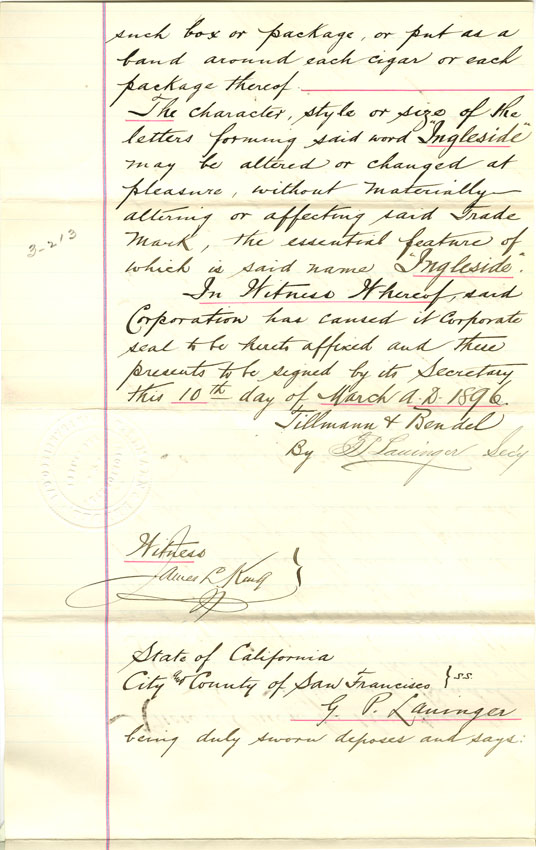 such box or package, or put as a
band around each cigar or each
package thereof.
The character, style or size of the
letters forming said word "Ingleside"
may be altered or changed at
pleasure, without materially
altering or affecting said Trade
Mark, the essential feature of
which is said name "Ingleside".
In Witness Whereof, said
Corporation has caused it Corporate
seal to be hereto affixed and these
presents to be signed by its Secretary
this 10th day of March A.D. 1896.
Tillmann & Bendel
By G P Lauinger Secy
3-213
Witness
James L. King
State of California
City and County of San Francisco } ss.
G. P. Lauinger
being duly sworn deposes and says: